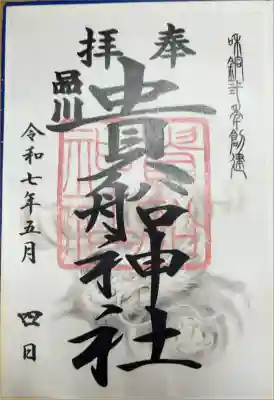 和銅二年創建
奉拝
品川
貴船神社
令和七年五月四日